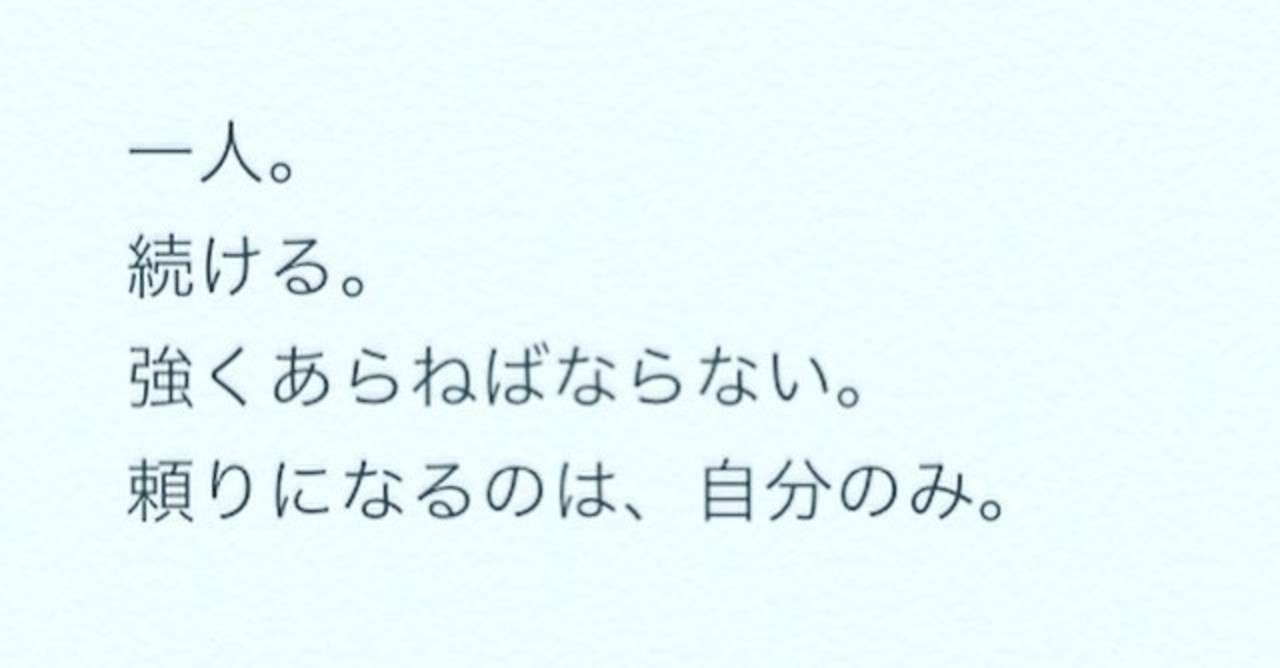 一人。
続ける。
強くあらねばならない。
頼りになるのは、自分のみ。